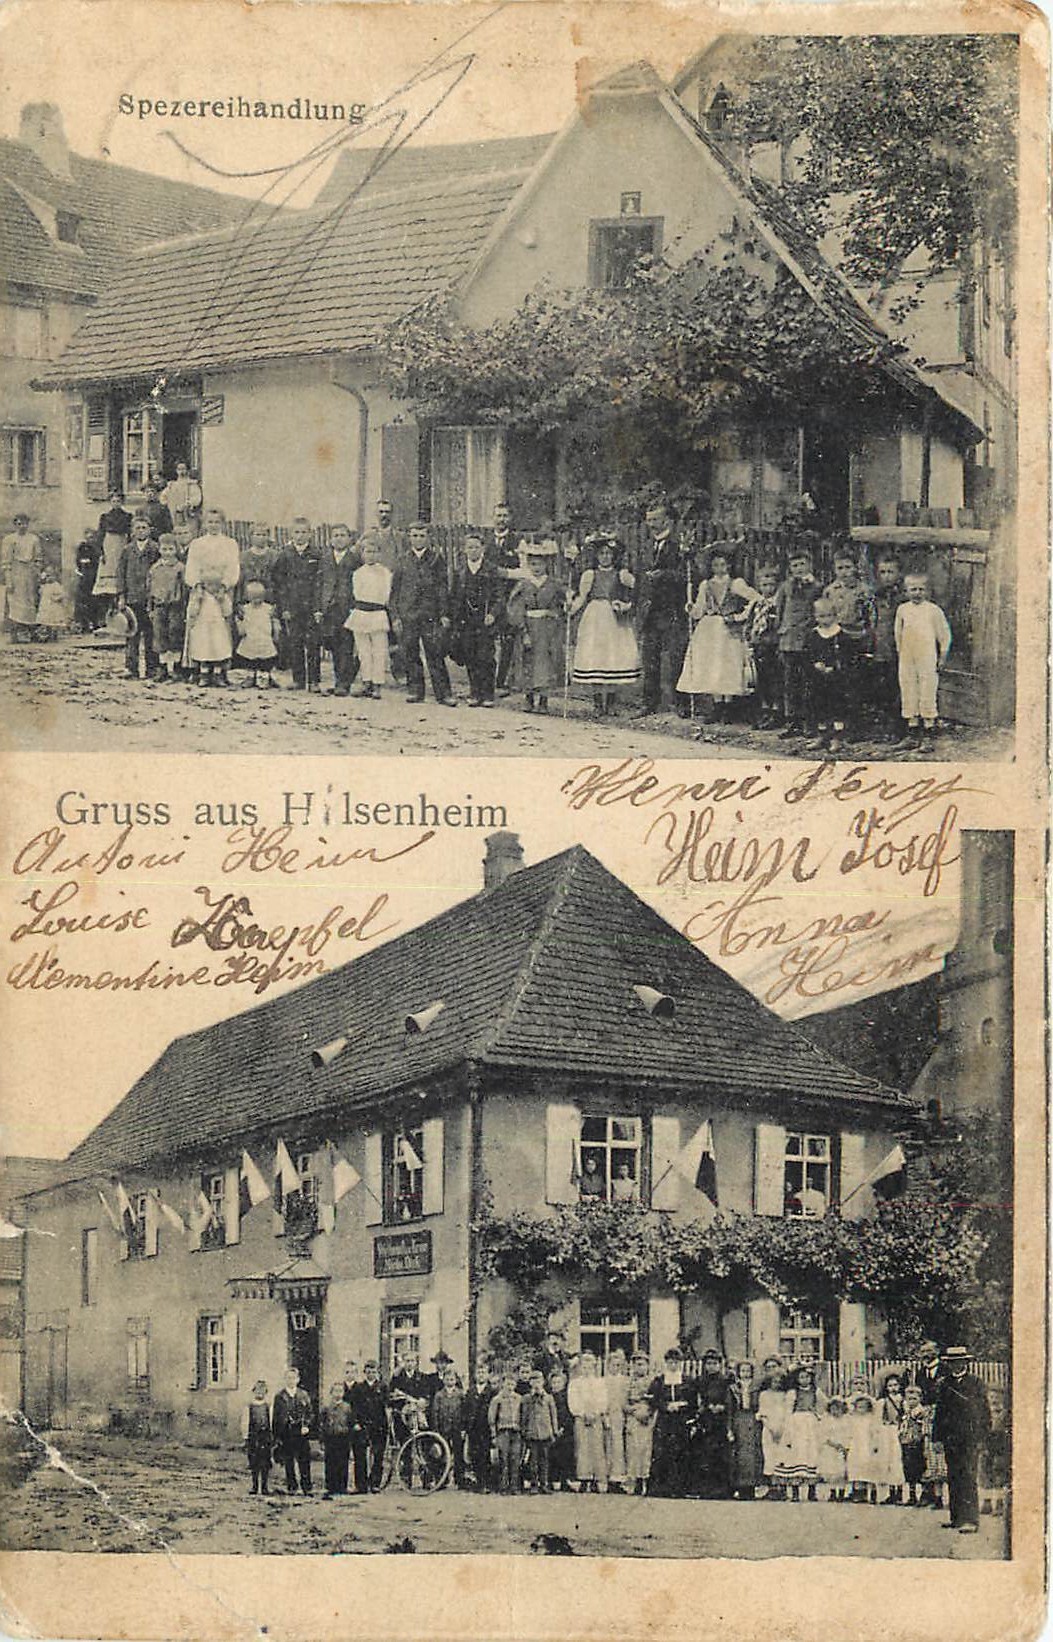 Spezereihandlung
Gruss aus Hilsenheim
Henri Féry
Heim Josef
Anna
Heim
Antoni Heim
Louise Koepfel
Klementine Heim